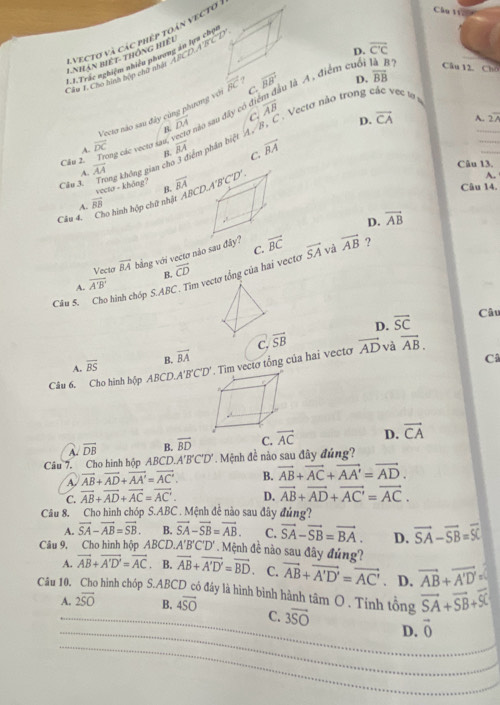 I. VECTƠ VÀ CÁC PHÉP TOÁN VECTƠ
I. NHẬN BIẾT- THÔNG HIỂU
1.1.Trắc nghiệm nhiều phương án lựa chọn
Câu 1. Cho hình hộp chữ nhật ABCD.A'B'C'D'.
Vectơ nào sau đây cùng phương với \overrightarrow{BC} ?
A. \overrightarrow{DC} B. \overrightarrow{DA} C. \overrightarrow{BB'} D. \overrightarrow{C'C}
Câu 2. Trong các vectơ sau, vectơ nào sau đây có điểm đầu là A, điểm cuối là B?
A. \overrightarrow{AA} B. \overrightarrow{BA} C. \overrightarrow{AB} D. \overrightarrow{BB}
Câu 3. Trong không gian cho 3 điểm phân biệt A, B, C. Vectơ nào trong các vec tơ
vectơ - không?
A. \overrightarrow{BB} B. \overrightarrow{BA} C. \overrightarrow{BA} D. \overrightarrow{CA}
Câu 4. Cho hình hộp chữ nhật ABCD.A'B'C'D'.
Vectơ \overrightarrow{BA} bằng với vectơ nào sau đây?
A. \overrightarrow{A'B'} B. \overrightarrow{CD} C. \overrightarrow{BC} D. \overrightarrow{AB}
Câu 5. Cho hình chóp S.ABC. Tìm vectơ tổng của hai vectơ \overrightarrow{SA} và \overrightarrow{AB} ?
A. \overrightarrow{BS} B. \overrightarrow{BA} C. \overrightarrow{SB} D. \overrightarrow{SC}
Câu 6. Cho hình hộp ABCD.A'B'C'D'. Tìm vectơ tổng của hai vectơ \overrightarrow{AD} và \overrightarrow{AB}.
A. \overrightarrow{DB} B. \overrightarrow{BD} C. \overrightarrow{AC} D. \overrightarrow{CA}
Câu 7. Cho hình hộp ABCD.A'B'C'D'. Mệnh đề nào sau đây đúng?
A. \overrightarrow{AB}+\overrightarrow{AD}+\overrightarrow{AA'}=\overrightarrow{AC'}. B. \overrightarrow{AB}+\overrightarrow{AC}+\overrightarrow{AA'}=\overrightarrow{AD}.
C. \overrightarrow{AB}+\overrightarrow{AD}+\overrightarrow{AC}=\overrightarrow{AC'}. D. \overrightarrow{AB}+\overrightarrow{AD}+\overrightarrow{AC'}=\overrightarrow{AC}.
Câu 8. Cho hình chóp S.ABC. Mệnh đề nào sau đây đúng?
A. \overrightarrow{SA}-\overrightarrow{AB}=\overrightarrow{SB}. B. \overrightarrow{SA}-\overrightarrow{SB}=\overrightarrow{AB}. C. \overrightarrow{SA}-\overrightarrow{SB}=\overrightarrow{BA}. D. \overrightarrow{SA}-\overrightarrow{SB}=\overrightarrow{SC}
Câu 9. Cho hình hộp ABCD.A'B'C'D'. Mệnh đề nào sau đây đúng?
A. \overrightarrow{AB}+\overrightarrow{A'D'}=\overrightarrow{AC}. B. \overrightarrow{AB}+\overrightarrow{A'D'}=\overrightarrow{BD}. C. \overrightarrow{AB}+\overrightarrow{A'D'}=\overrightarrow{AC'}. D. \overrightarrow{AB}+\overrightarrow{A'D'}=
Câu 10. Cho hình chóp S.ABCD có đáy là hình bình hành tâm O. Tính tổng \overrightarrow{SA}+\overrightarrow{SB}+\overrightarrow{SC}
A. 2\overrightarrow{SO} B. 4\overrightarrow{SO} C. 3\overrightarrow{SO} D. \overrightarrow{0}
Câu 11
Câu 12.
A. 2
Câu 13.
A.
Câu 14.
Câu